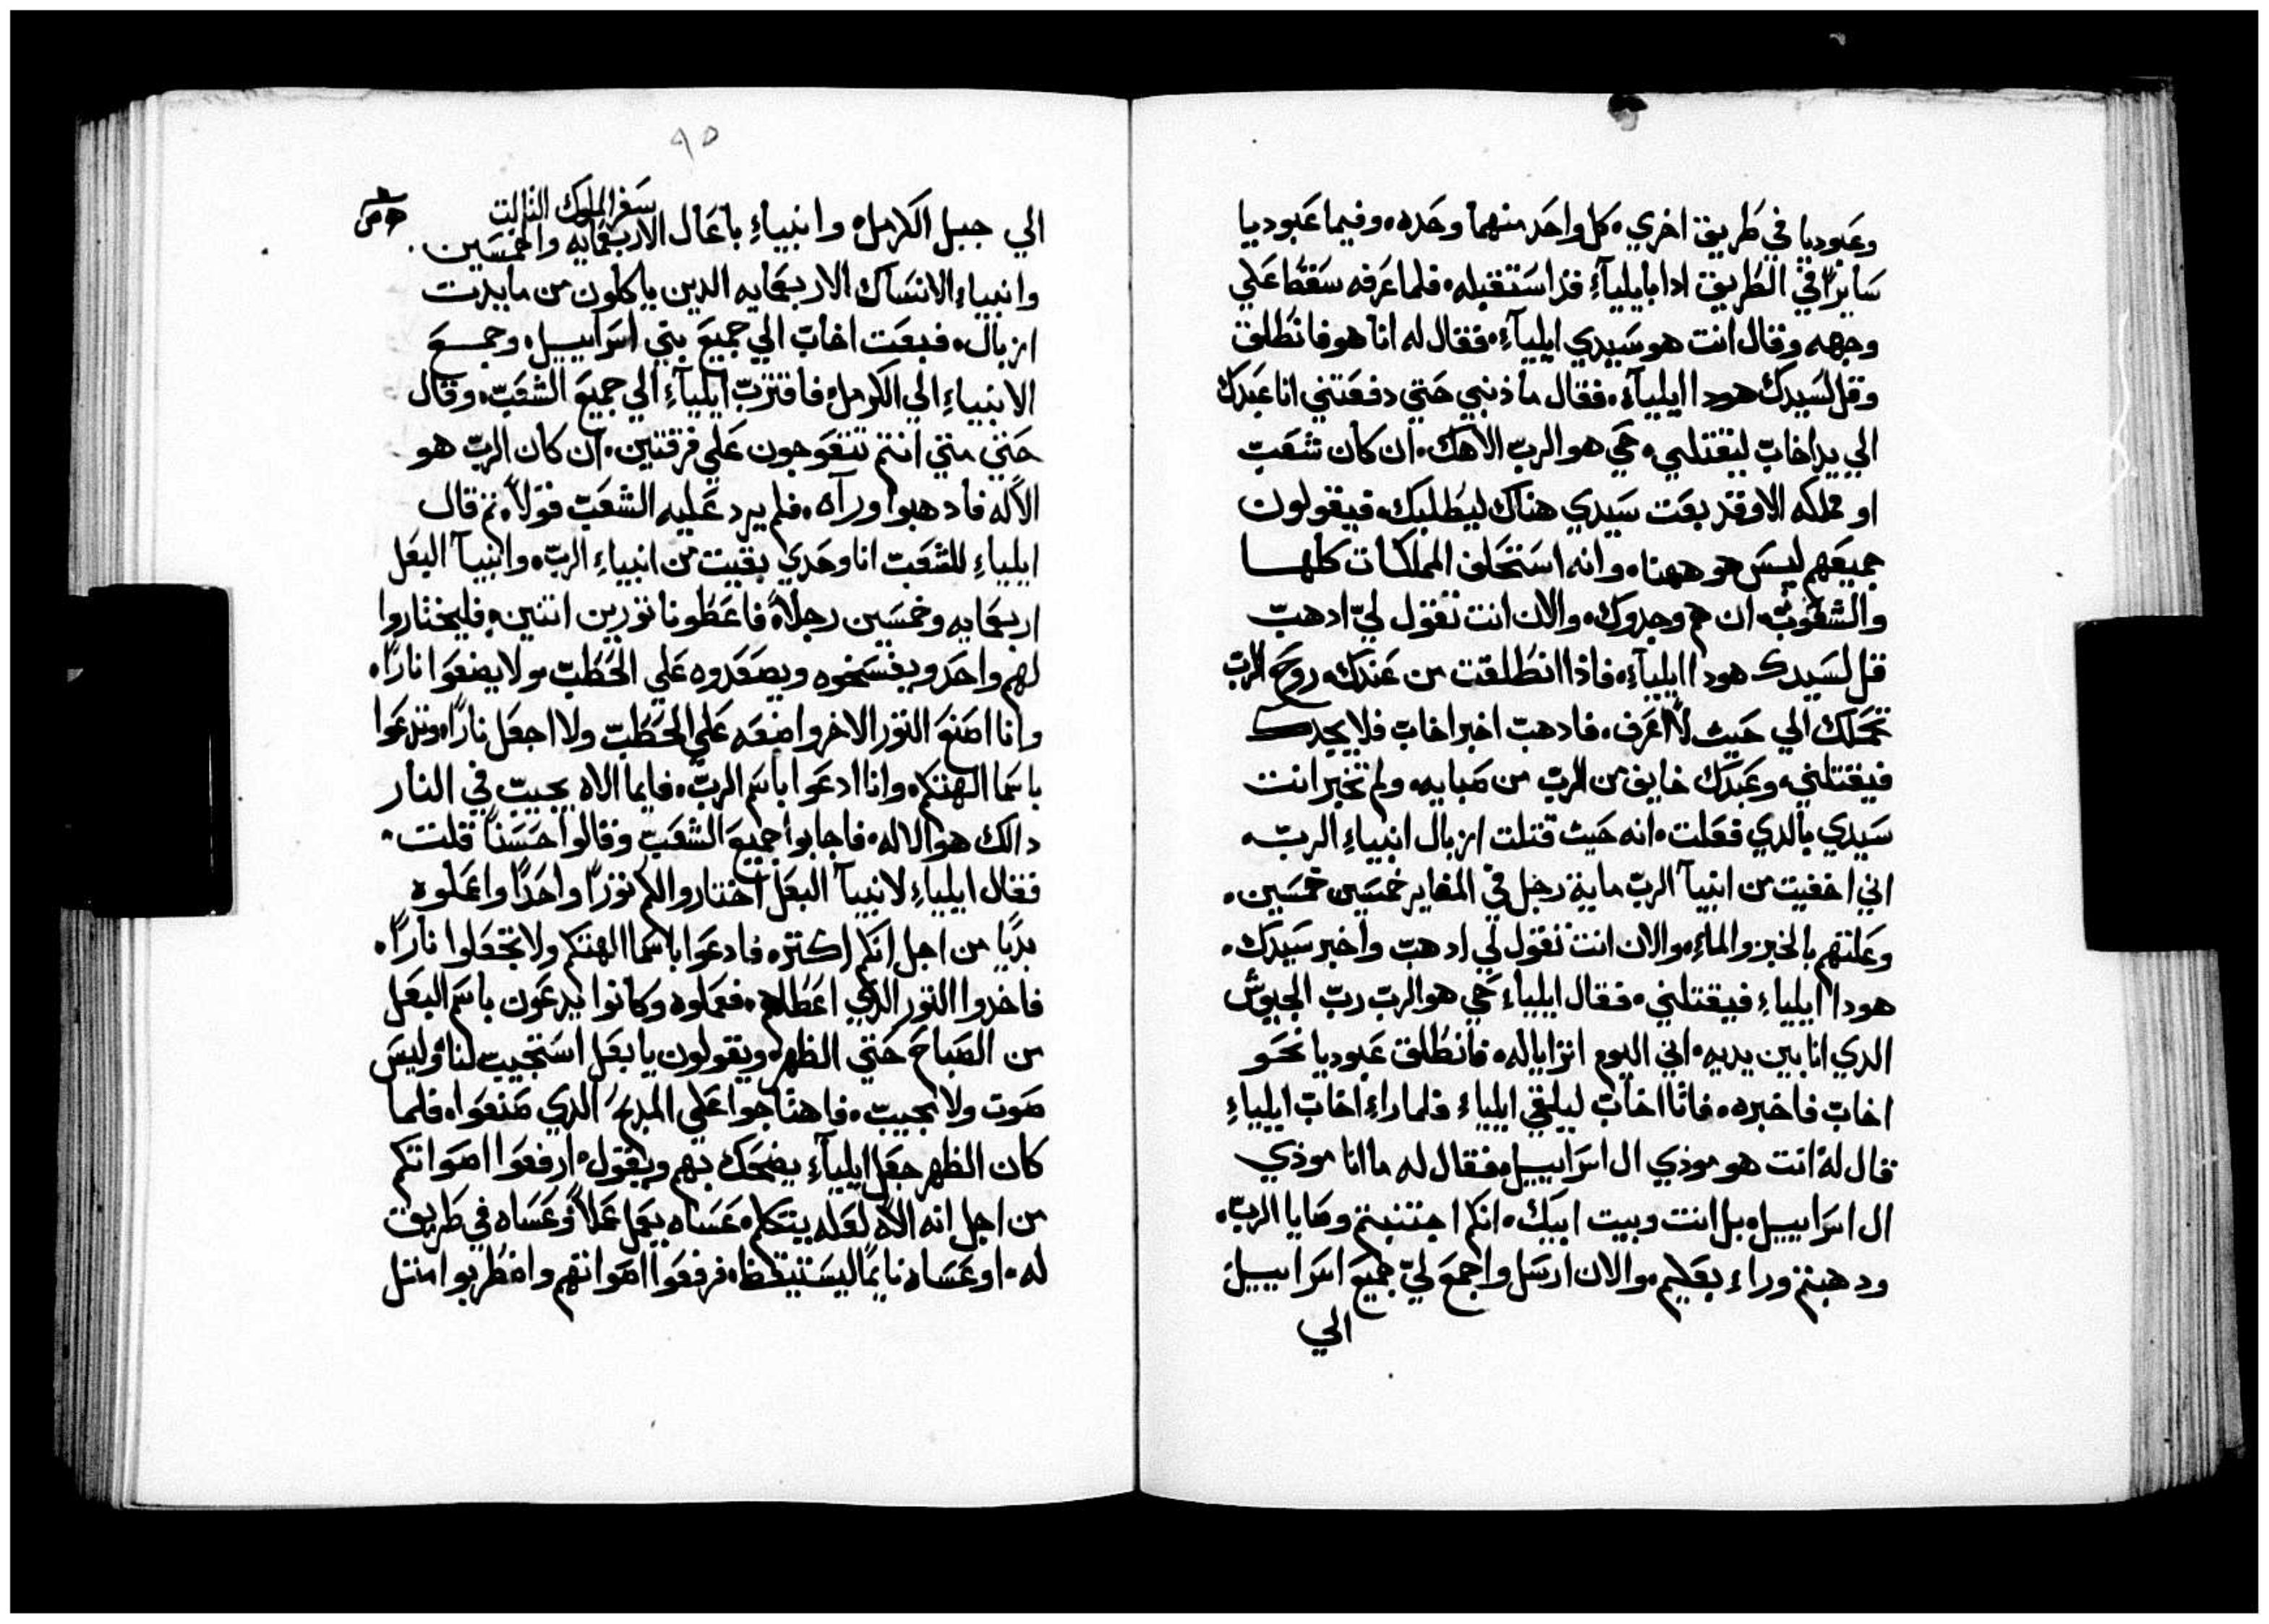 وعبوديا في طريق اخري، كل واحد منهما وحده، وفيما عبوديا
سايرًا في الطريق ادا بايلياء قد استقبله، فلما عرفه سقط علي
وجهه وقال انت هو سيدي ايلياء، فقال له انا هو فانطلق
وقل لسيدك هودا ايلياء، فقال ما ذنبي حتي دفعتني انا عبدك
الي يد اخاب ليقتلني، حي هو الرب الاهك، ان كان شعب
او مملكه الا وقد بعت سيدي هناك ليطلبك، فيقولون
جميعهم ليس هو ههنا، وانه استحلف المملكات كلها
والشعوب، ان هم وجدوك، والان انت تقول لي ادهب
قل لسيدك هودا ايلياء، فاذا انطلقت من عندك، روح الرب
تحملك الي حيث لا اعرف، فادهب اخبر اخاب فلا يجدك
فيقتلني، وعبدك خايف من الرب من صبايه، ولم تخبر انت
سيدي بالدي فعلت، انه حيث قتلت ازبال انبياء الرب،
اني اخفيت من انبيآ الرب ماية رجل في المغاير خمسين خمسين،
وعلتهم بالخبز والماء، والان انت تقول لي ادهب واخبر سيدك،
هودا ايلياء فيقتلني، فقال ايلياء حي هو الرب رب الجيوش
الدي انا بين يديه، اني اليوم اترايا له، فانطلق عبوديا نحو
اخاب فاخبره، فاتا اخاب ليلقي ايلياء فلما راء اخاب ايلياء
قال له انت هو موذي ال اسراييل، فقال له ما انا موذي
ال اسراييل، بل انت وبيت ابيك، انكم اجتنبتم وصايا الرب،
ودهبتم وراء بعليم، والان ارسل واجمع لي جميع اسراييل
الي
٩٥
سفر الملوك الثالت
الي جبل الكرمل، وانبياء باعال الاربعمايه والخمسين،
وانبياء الانساك الاربعمايه الدين ياكلون من مايدت
ازبال، فبعت اخاب الي جميع بني اسراييل، وجمع
الانبياء الي الكرمل، فاقترب ايلياء الي جميع الشعب، وقال
حتي متي انتم تنعوجون علي فرقتين، ان كان الرب هو
الاله فادهبوا ورآه، فلم يرد عليه الشعب قولاً، تم قال
ايلياء للشعب انا وحدي بقيت من انبياء الرب، وانبيآ البعل
اربعمايه وخمسين رجلاً، فاعطونا تورين اتنين، فليختاروا
لهم واحد ويفسخوه ويصعدوه علي الحطب، ولا يضعوا نارًا،
وانا اصنع التور الاخر واضعه علي الحطب ولا اجعل نارًا، وتدعوا
باسما الهتكم، وانا ادعوا باسم الرب، فايما الاه يجيب في النار
دالك هو الاله، فاجابوا جميع الشعب وقالوا حسنًا قلت،
فقال ايلياء لانبيآ البعل اختاروا لكم تورًا واحدًا واعملوه
بديًا من اجل انكم اكتر، فادعوا باسما الهتكم ولا تجعلوا نارًا،
فاخدوا التور الدي اعطاهم، فعملوه وكانوا يدعون باسم البعل
من الصباح حتي الظهر، ويقولون يا بعل استجيب لنا، وليس
صوت ولا مجيب، فاهتاجوا علي المدبح الدي صنعوا، فلما
كان الظهر جعل ايلياء يضحك بهم ويقول، ارفعوا اصواتكم
من اجل انه الاه لعله يتكلم، عساه يعمل عملاً، وعساه في طريق
له، او عساه نايمًا ليستيقظ، فرفعوا اصواتهم واضطربوا متل